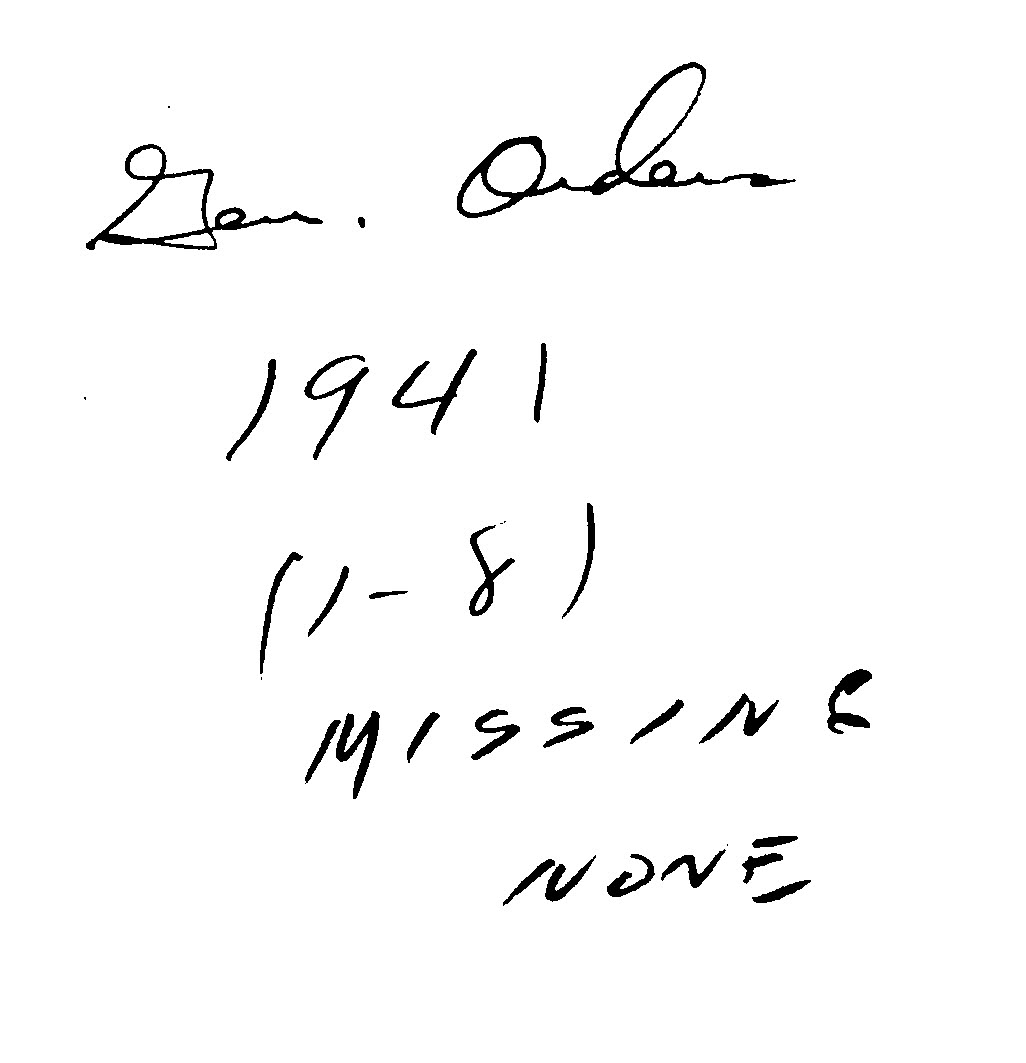 Gen. Orders
1941
(1-8)
MISSING
NONE